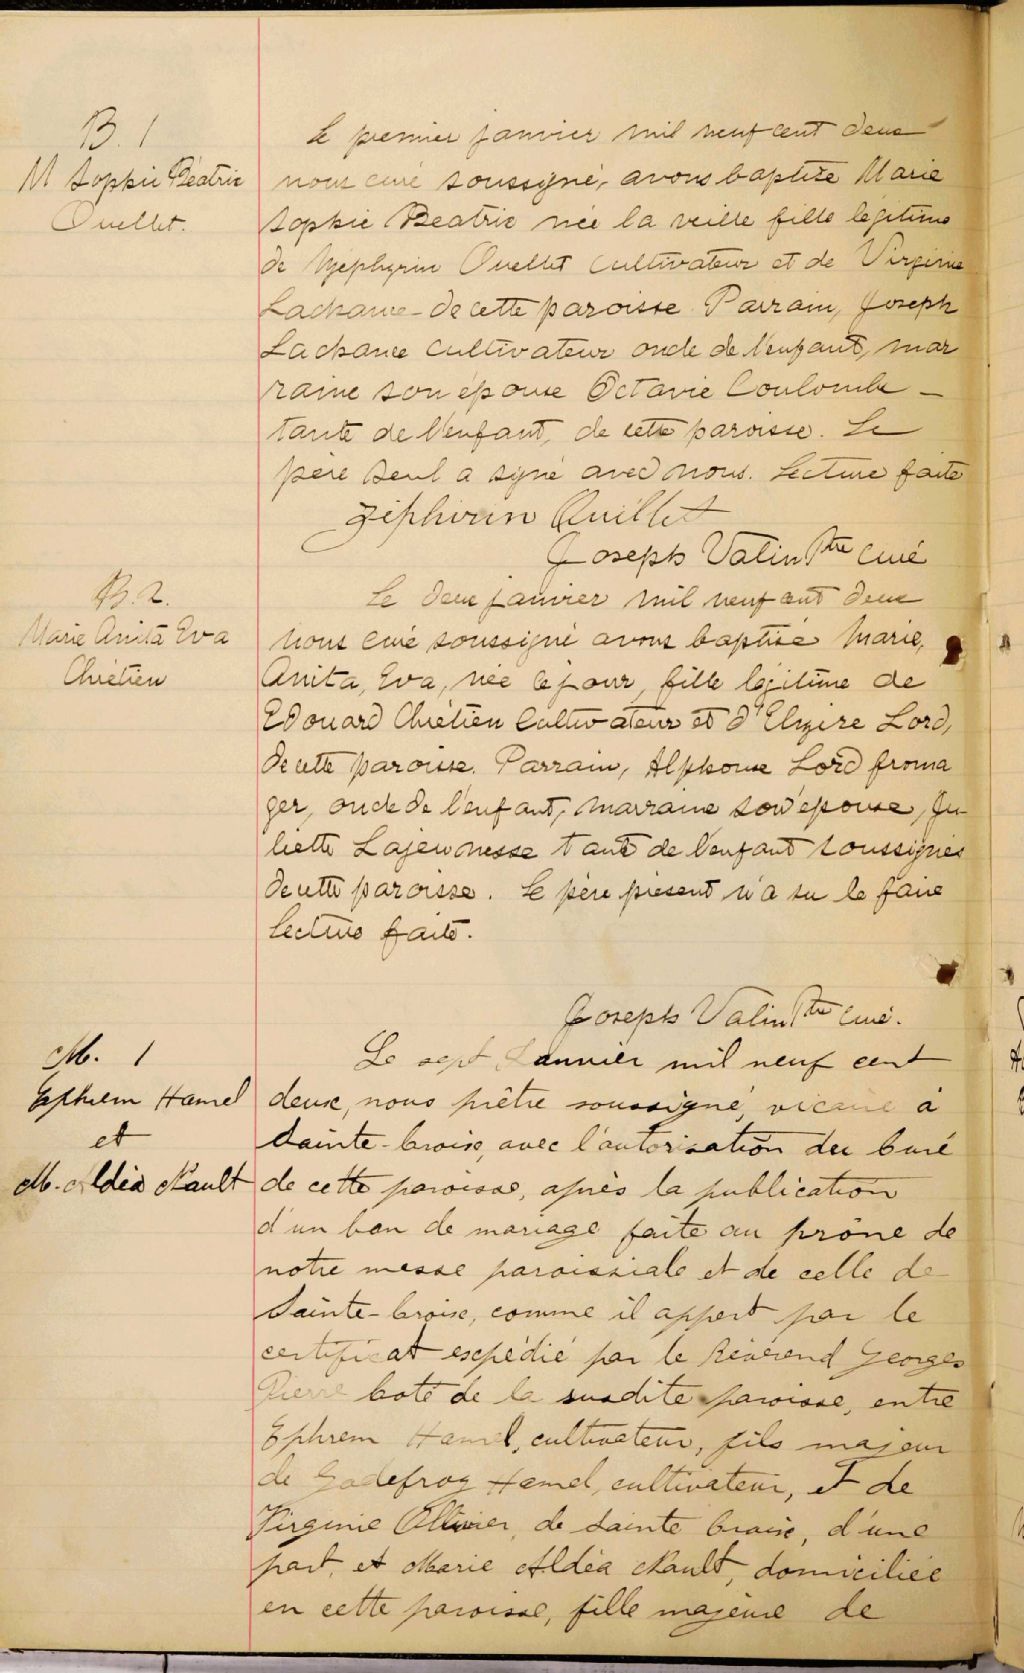 B. 1
M Sophie Béatrix
Ouellet.
Le premier janvier mil neuf cent deux
nous curé soussigné, avons baptisée Marie
Sophie Beatrix née la veille fille légitime
de Zéphyrin Ouellet cultivateur et de Virginie
Lachance de cette paroisse. Parrain, Joseph
Lachance cultivateur oncle de l'enfant, mar
raine son épouse Octavie Coulombe –
tante de l'enfant, de cette paroisse. Le
père seul a signé avec nous. Lecture faite
Zéphirin Ouillet
Joseph Valin Ptre curé
B. 2.
Marie Anita Eva
Chrétien
Le deux janvier mil neuf cent deux
nous curé soussigné avons baptisé Marie,
Anita, Eva, née ce jour, fille légitime de
Edouard Chrétien cultivateur et d'Elmire Lord,
de cette paroisse. Parrain, Alphonse Lord froma
ger, oncle de l'enfant, marraine son épouse, Ju
liette Lajeunesse tante de l'enfant soussignés
de cette paroisse. Le père présent n'a su le faire
Lecture faite.
Joseph Valin Ptre curé.
M. 1
Ephrem Hamel
et
M. Aldéa Nault
Le sept Janvier mil neuf cent
deux, nous prêtre soussigné, vicaire à
Sainte-Croix, avec l'autorisation du Curé
de cette paroisse, après la publication
d'un ban de mariage faite au prône de
notre messe paroissiale et de celle de
Sainte-Croix, comme il appert par le
certificat expédié par le Révérend Georges
Pierre Coté de la susdite paroisse, entre
Ephrem Hamel, cultivateur, fils majeur
de Godefroy Hamel, cultivateur, et de
Virginie Ollivier, de Sainte Croix, d'une
part, et Marie Aldéa Nault, domiciliée
en cette paroisse, fille majeure de